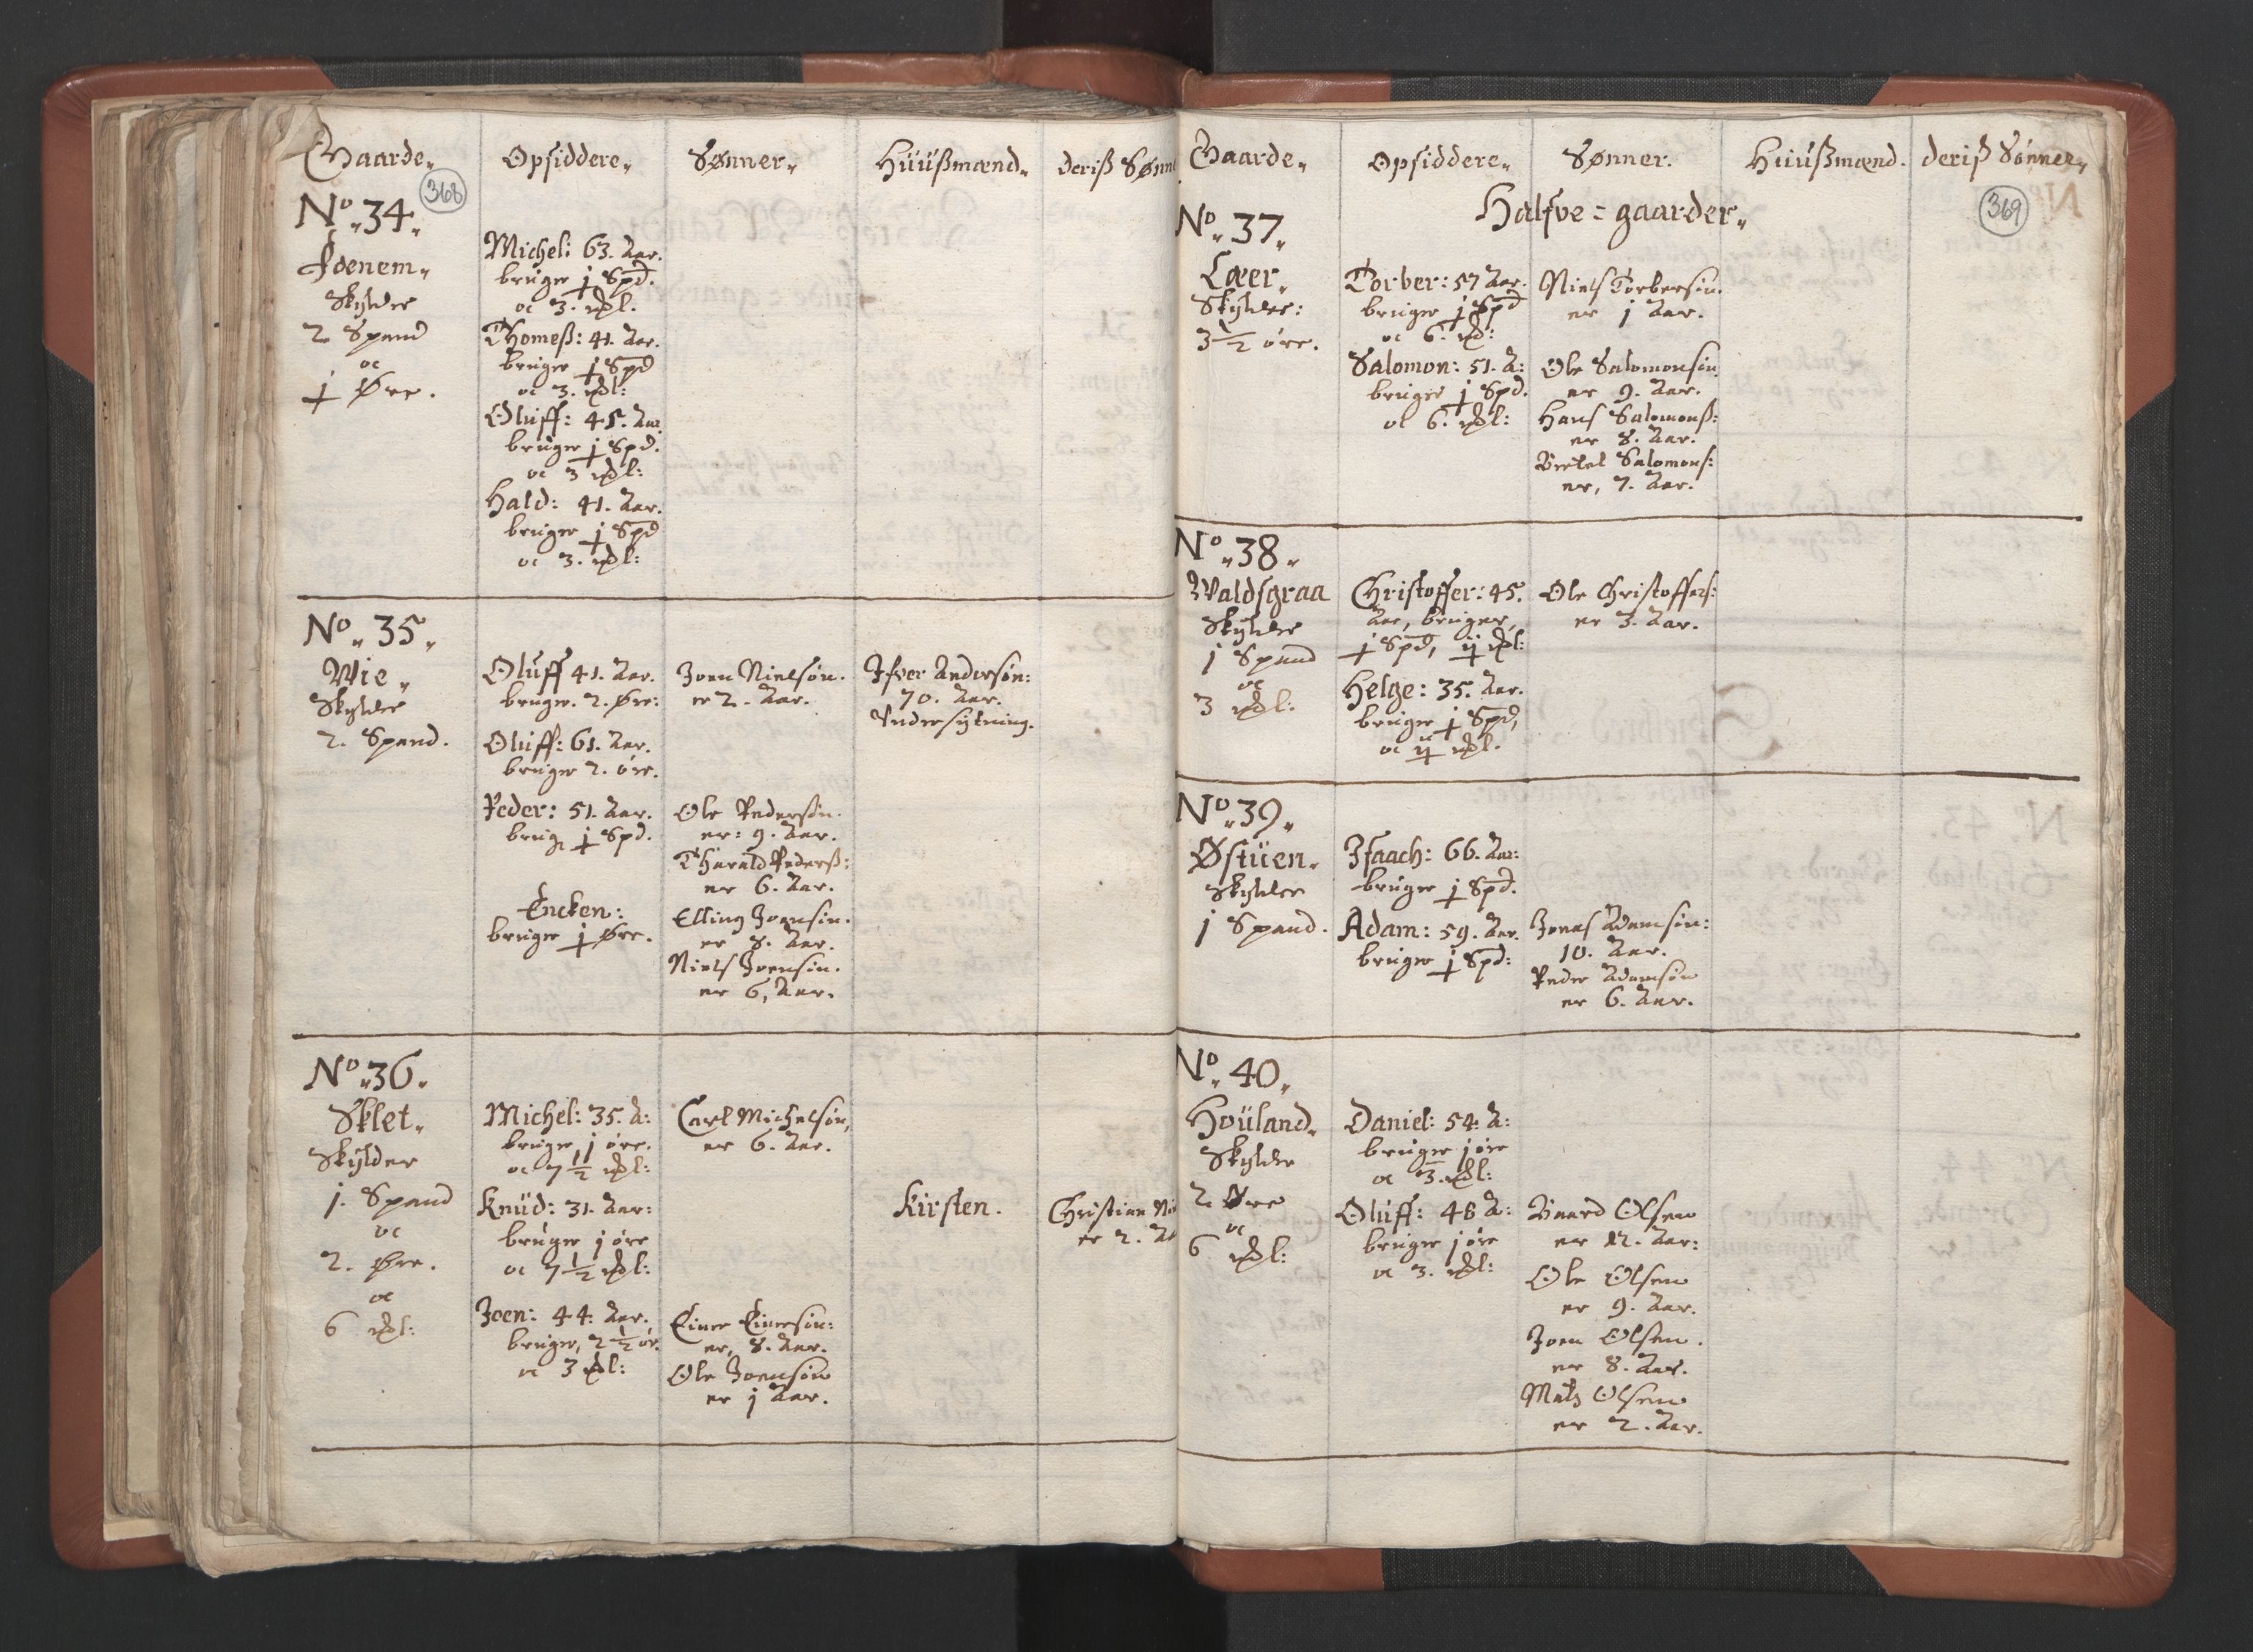 Gaarde„
Opsiddere„
Sønner„
Huüßmænd„
deriß Sønn
368
No. 34.
Skylder
2. Spand
oc
j Øre.
Michel: 63. Aar.
bruger j Spd.
oc 3. mkl.
THomeß: 41. Aar.
bruger j Spd
oc 3. mkl:
Oluff: 45. Aar
bruger j Spd.
oc 3 mkl:
Hald: 41. Aar.
bruger j Spd
oc 3. mkl:
No. 35„
Wie„
Skylder
2. Spand.
Oluff 41. Aar.
bruger. 2. Øre:
Oluff: 61. Aar.
bruger 2. øre.
Peder: 51. Aar.
brug j Spd.
Encken:
bruger j Øre.
Joen Nielsøn.
er 2. Aar.
Ole Pedersøn.
er: 9. Aar.
THarald Pederß:
er 6. Aar.
Elling Joensøn.
er 8. Aar.
Niels Joensøn.
er 6, Aar.
Ifver Andersøn:
70. Aar.
No. 36„
Sklet„
Skylder
j. Spand
oc
2. Øre.
oc
6 mkl:
Michel: 35. A:
bruger, j øre.
oc 7½ mkl:
Knud: 31. Aar:
bruger j øre
oc 7½ mkl:
Joen: 44. Aar.
bruger, 2½ ør.
oc 3 mkl:
Carl Michelsøn,
er 6. Aar.
Einer Einersøn:
er, 8. Aar.
Ole Joensøn
er j Aar.
Kirsten.
Christian Ni
er 2. Aa
Gaarde„
Opsiddere„
Sønner.
Huüßmænd.
deriß Sønner„
369
Halfve=gaarder„
No. 37„
Læer„
Skylder:
3½ øre.
Torber: 57 Aar.
bruger j Spd
oc 6. mkl:
Salomon: 51. A:
bruger j Spd.
oc 6. mkl:
Niels Torbersøn.
er j Aar.
Ole Salomonsøn
er 9. Aar.
Hans Salomonß:
er 8. Aar.
Salomons:
er, 7. Aar.
No. 38„
Waldsgraa
Skylder
j Spand
oc
3 mkl:
Christoffer: 45.
Aar, bruger,
j Spd, ij mkl:
Helge: 35. Aar.
bruger j Spd,
oc ij mkl.
Ole Christoffers:
er 3. Aar.
No. 39„
Østüen„
Skylder
j Spand.
Isaach: 66. Aar:
bruger j Spd.
Adam: 59. Aar.
bruger j Spd:
Jonas Adamsøn:
10. Aar.
Peder Adamsøn
er 6. Aar.
No. 40„
Hoüland„
Skylder
2. Øre
oc
6 mkl:
Daniel: 54. A:
bruger j øre
oc 3. mkl:
Oluff: 46 A:
bruger j øre
oc 3. mkl:
Baard Olsen
er 12. Aar:
Ole Olsen
er 9. Aar.
Joen Olsen.
er 8. Aar.
Mats Olsen
er 2. Aar.